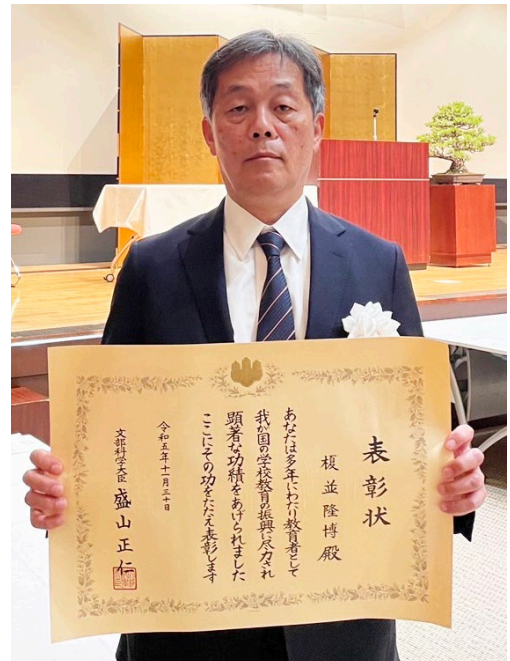 表彰状
榎並隆博殿
あなたは多年にわたり教育者として
我が国の学校教育の振興に尽力され
顕著な功績をあげられました
ここにその功をたたえ表彰します
令和五年十一月三十日
文部科学大臣 盛山正仁